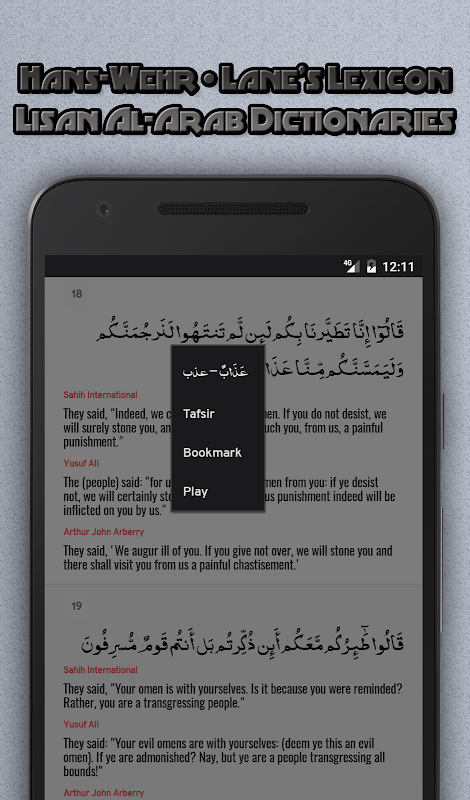 Hans-Wehr • Lane's Lexicon
Lisan Al-Arab Dictionaries
4G 12:11
18
قَالُوٓا۟ إِنَّا تَطَيَّرْنَا بِكُمْ لَئِن لَّمْ تَنتَهُوا۟ لَنَرْجُمَنَّكُمْ
وَلَيَمَسَّنَّكُم مِّنَّا
عَذَابٌ – عذب
Tafsir
Bookmark
Play
Sahih International
They said, "Indeed, we If you do not desist, we
will surely stone you, you, from us, a painful
punishment."
Yusuf Ali
The (people) said: "for men from you: if ye desist
not, we will certainly us punishment indeed will be
inflicted on you by us."
Arthur John Arberry
They said, 'We augur ill of you. If you give not over, we will stone you and
there shall visit you from us a painful chastisement.'
19
قَالُوا۟ طَٰٓئِرُكُم مَّعَكُمْ أَئِن ذُكِّرْتُم بَلْ أَنتُمْ قَوْمٌ مُّسْرِفُونَ
Sahih International
They said, "Your omen is with yourselves. Is it because you were reminded?
Rather, you are a transgressing people."
Yusuf Ali
They said: "Your evil omens are with yourselves: (deem ye this an evil
omen). If ye are admonished? Nay, but ye are a people transgressing all
bounds!"
Arthur John Arberry